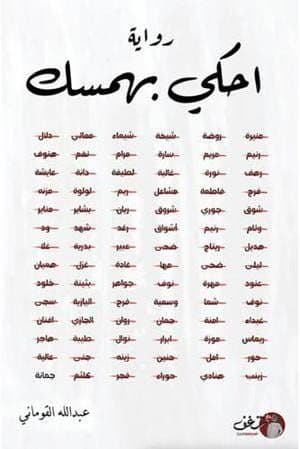 رواية
احكي بهمسك
منيرة روضة شيخة شيماء معالي دلال
رنيم مريم سارة مرام نغم هنوف
رهف نورة غالية لطيفة دانة عايشة
فرح فاطمة مشاعل ريم لولوة مزنه
شوق جوري شروق ريان بشاير مناير
وئام رنيم أشواق رغد شهد ود
هديل ريتاج ضحى عبير بدرية علا
ليلى ضحى مها غادة غزل هميان
عنود مهرة نوف جواهر بثينة خلود
نوف شما وسمية فرح اليازية سجى
غيداء امنة جمان روان الجازي افنان
ريماس موزة ابرار نوال طيبة هاجر
حور امل حنين زينه جنى عالية
زينب هنادي حوراء فجر كلثم جمانة
عبدالله القوماني